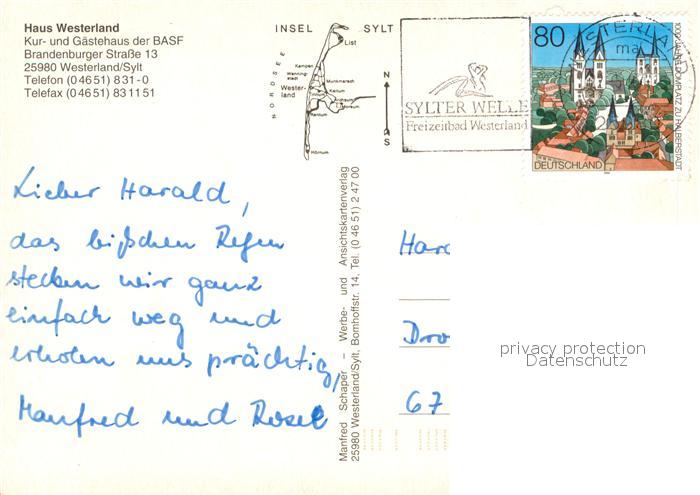 Haus Westerland
Kur- und Gästehaus der BASF
Brandenburger Straße 13
25980 Westerland/Sylt
Telefon (0 46 51) 8 31-0
Telefax (0 46 51) 83 11 51
INSEL SYLT
NORDSEE
List
Kampen
Wenning-
stedt
Munkmarsch
Wester-
land
Keitum
Archsum
Morsum
Rantum
Hörnum
N
S
SYLTER WELLE
Freizeitbad Westerland
WESTERLAND
ma
80
1000 JAHRE DOMPLATZ ZU HALBERSTADT
DEUTSCHLAND
Lieber Harald,
das bißchen Regen
stecken wir ganz
einfach weg und
erholen uns prächtig,
Manfred und Rosel
Manfred Schaper – Werbe- und Ansichtskartenverlag
25980 Westerland/Sylt, Bomhoffstr. 14, Tel. (0 46 51) 2 47 00
Harc
Dro
67
privacy protection
Datenschutz